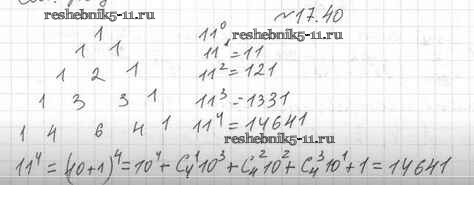 №17.40
reshebnik5-11.ru
1 11⁰
reshebnik5-11.ru
1 1 11¹=11
1 2 1 11²=121
1 3 3 1 11³=1331
1 4 6 4 1 11⁴=14641
reshebnik5-11.ru
11⁴=(10+1)⁴=10⁴+C₄¹10³+C₄²10²+C₄³10¹+1=14641